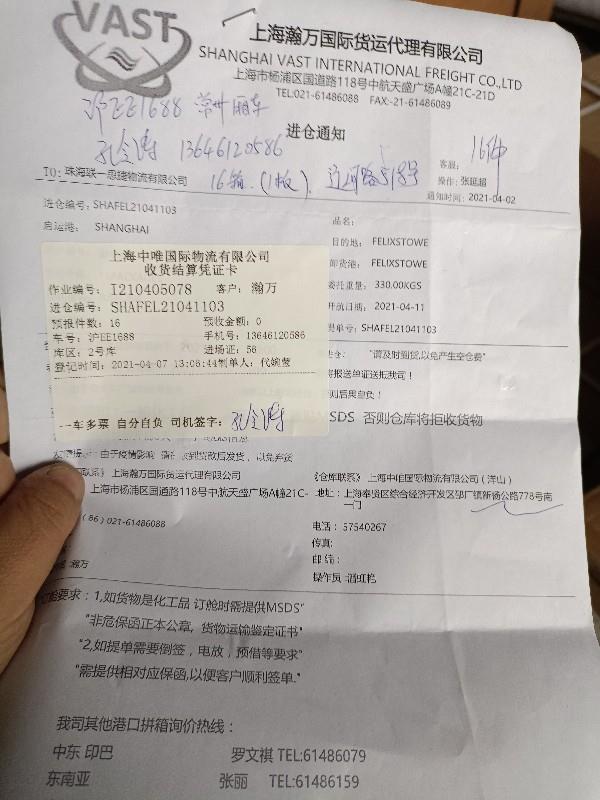 VAST
上海瀚万国际货运代理有限公司
SHANGHAI VAST INTERNATIONAL FREIGHT CO.,LTD
上海市杨浦区国道路118号中航天盛广场A幢21C-21D
TEL:021-61486088 FAX:-21-61486089
沪EE1688 常州 厢车
进仓通知
13646120586
16件
客服:
TO: 珠海联一思捷物流有限公司
16箱.(1板).
518号
操作: 张延超
通知时间: 2021-04-02
进仓编号: SHAFEL21041103
品名:
启运港: SHANGHAI
目的地: FELIXSTOWE
卸货港: FELIXSTOWE
委托重量: 330.00KGS
开航日期: 2021-04-11
提单号: SHAFEL21041103
上海中唯国际物流有限公司
收货结算凭证卡
作业编号: I210405078 客户: 瀚万
进仓编号: SHAFEL21041103
预报件数: 16 预收金额: 0
车号: 沪EE1688 手机号: 13646120586
库区: 2号库 进场证: 56
登记时间: 2021-04-07 13:08:44制单人: 代婉莹
一车多票 自分自负 司机签字:
"请及时到货,以免产生空仓费"
报送单证送抵我司!
则后果自负!
MSDS 否则仓库将拒收货物
由于疫情影响
到货后发货, 以免弃货
联系》上海瀚万国际货运代理有限公司
上海市杨浦区国道路118号中航天盛广场A幢21C-
(86) 021-61486088
瀚万
《仓库联系》 上海中唯国际物流有限公司 (洋山)
地址: 上海奉贤区综合经济开发区邬厂镇新杨公路778号南
一门
电话: 57540267
传真:
邮编:
操作员:
要求: 1,如货物是化工品 订舱时需提供MSDS"
"非危保函正本公章, 货物运输鉴定证书"
"2,如提单需要倒签, 电放, 预借等要求"
"需提供相对应保函,以便客户顺利签单."
我司其他港口拼箱询价热线:
中东 印巴 罗文祺 TEL:61486079
东南亚 张丽 TEL:61486159